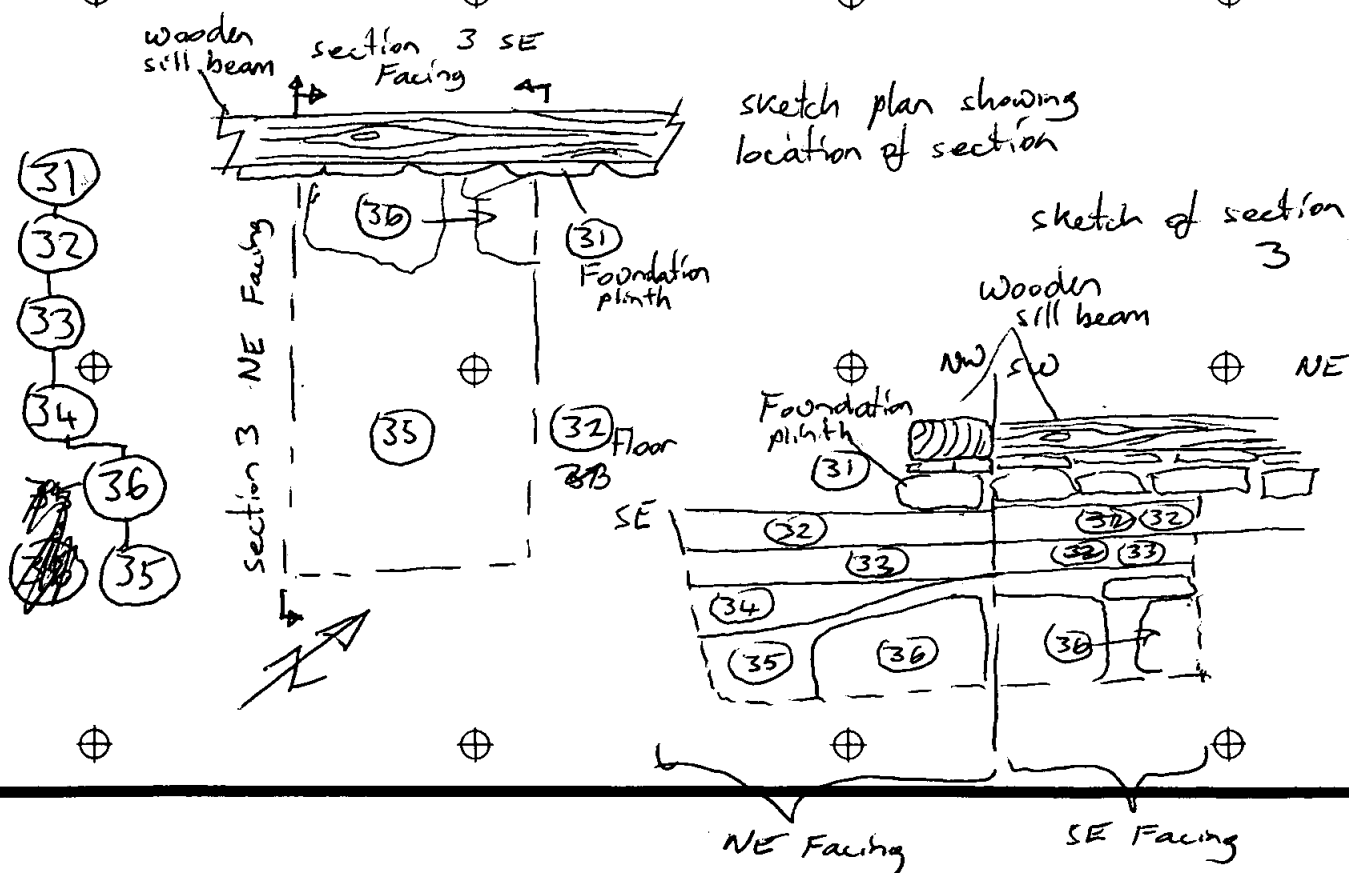 wooden
sill beam
section 3 SE
Facing
sketch plan showing
location of section
31
32
33
34
36
35
Section 3 NE Facing
36
31
Foundation
plinth
35
32 Floor
sketch of section
3
wooden
sill beam
NW SW
NE
Foundation
plinth
31
SE
32
32 32
33
32 33
34
35
36
36
NE Facing
SE Facing